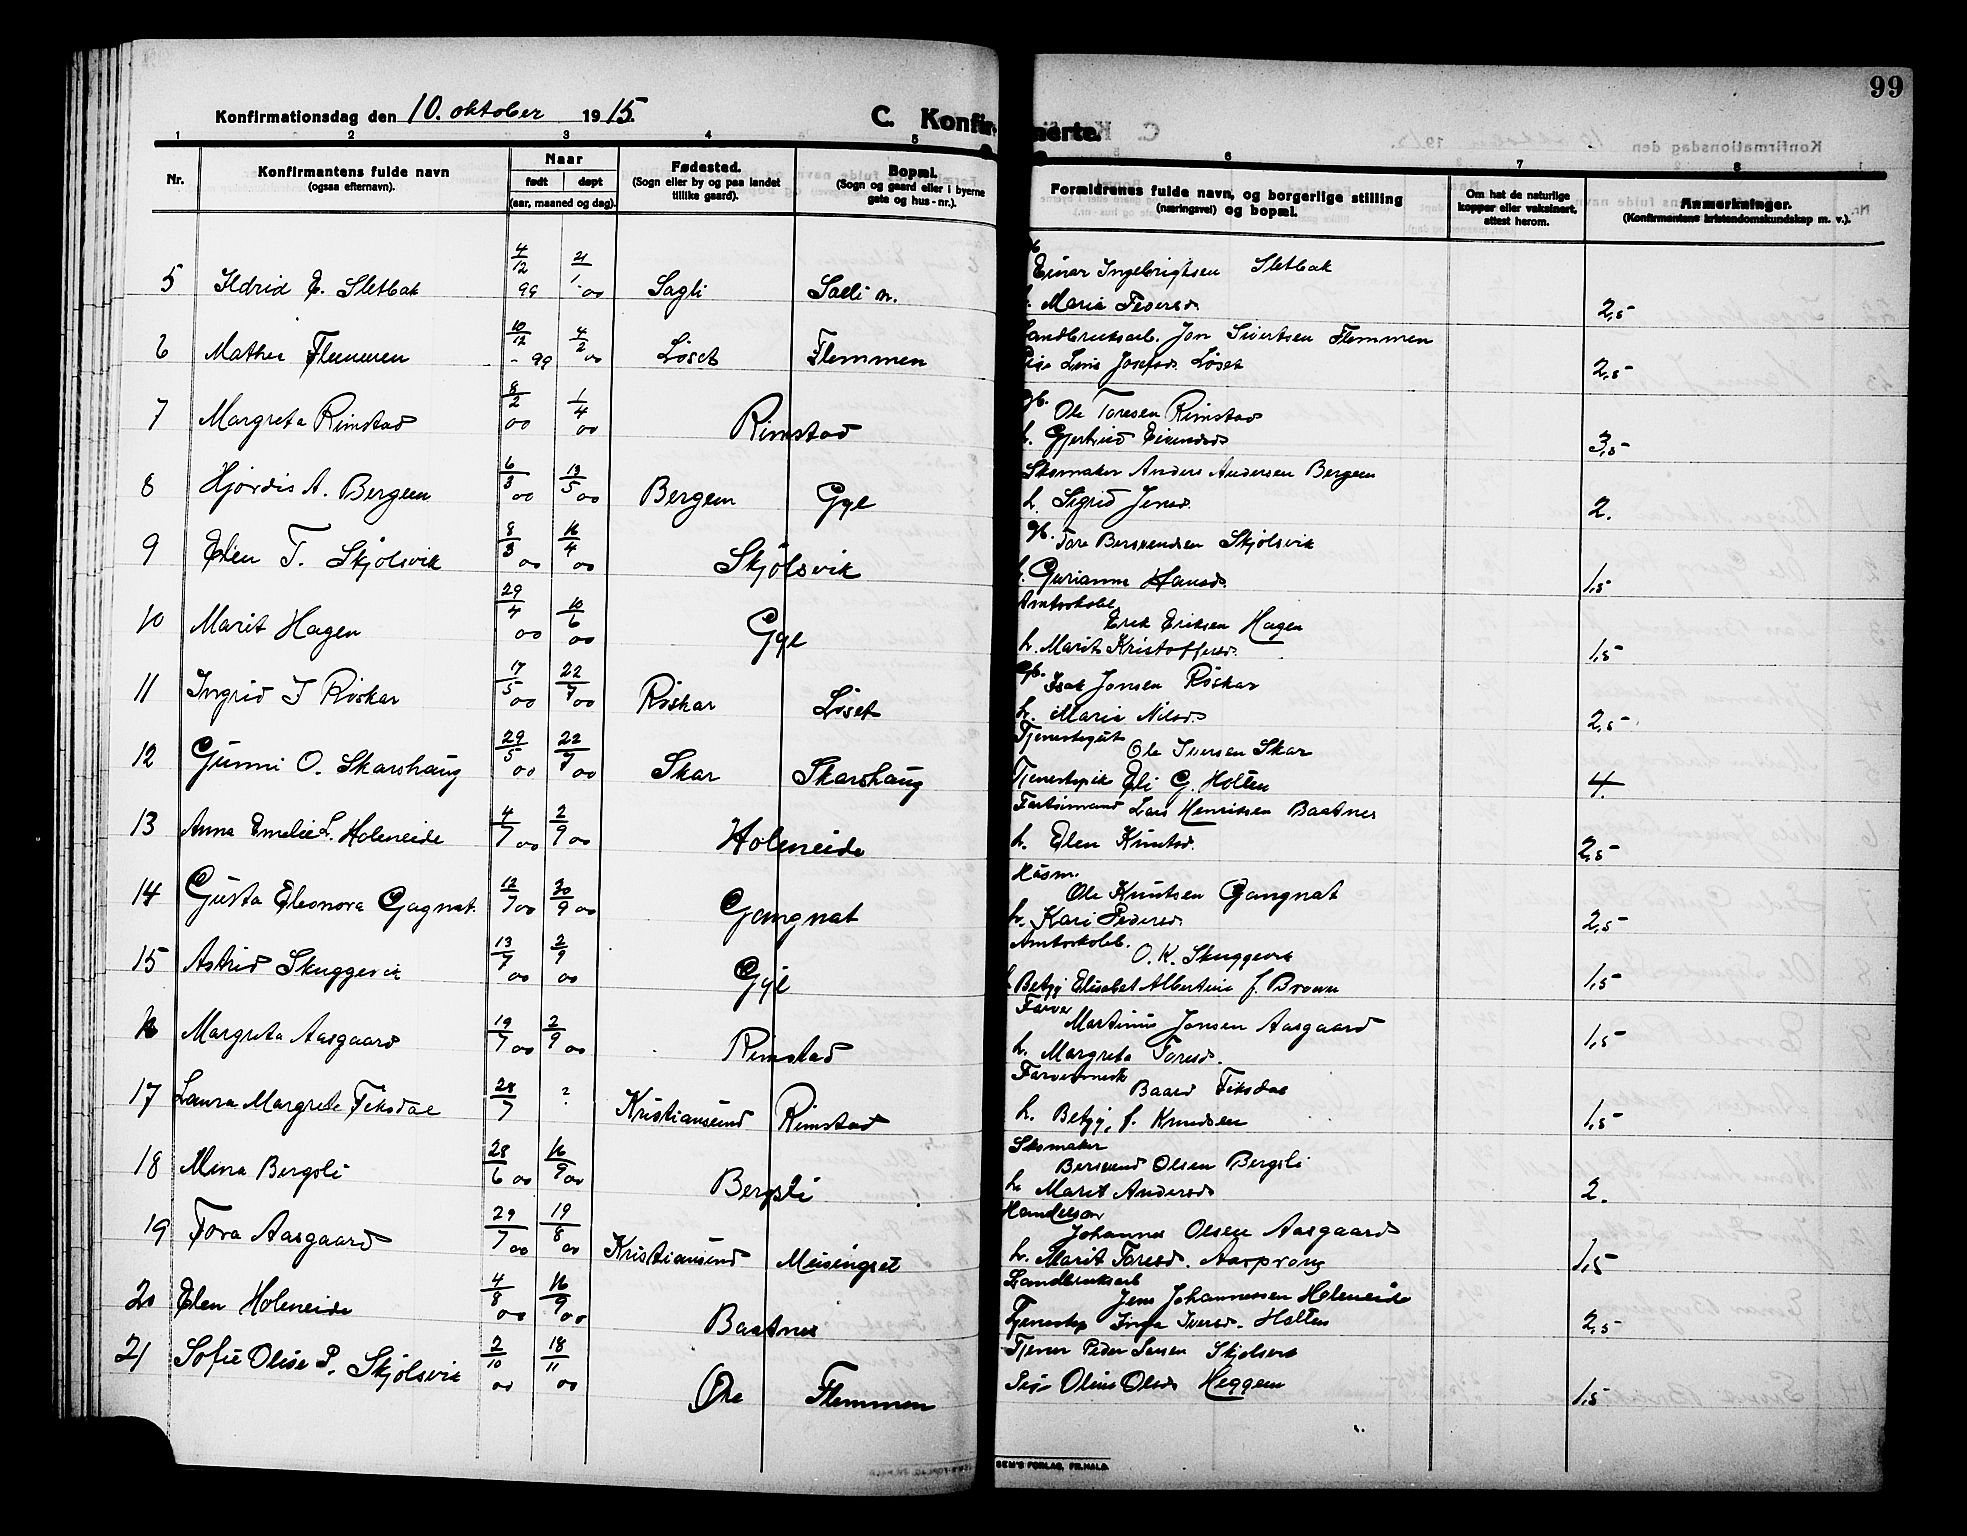 99
Konfirmationsdag den 10. oktober 1915.
C. Konfirmerte.
1 2 3 4 5 6 7 8
Nr.
Konfirmantens fulde navn
(ogsaa efternavn).
Naar
født døpt
(aar, maaned og dag).
Fødested.
(Sogn eller by og paa landet
tillike gaard).
Bopæl.
(Sogn og gaard eller i byerne
gate og hus-nr.).
Forældrenes fulde navn, og borgerlige stilling
(næringsvei) og bopæl.
Om hat de naturlige
kopper eller vaksinert,
attest herom.
Anmerkninger.
(Konfirmantens kristendomskundskap m. v.).
5 Ildrid E. Sletbak 4/12 99 21/1 00 Sagli Einar Ingebrigtsen Sletbak
Maria Pedersd. 2,5
6 Mathea Flemmen 10/12 - 99 4/2 00 Løset Flemmen Landbruksarb. Jon Sivertsen Flemmen
Pige Josefsd. Løset 2,5
7 Margreta Rimstad 8/2 00 1/4 00 Rimstad Gb. Ole Toresen Rimstad
h. Gjertrud 3,5
8 Hjørdis A. Bergem 6/3 00 13/5 00 Bergem Gyl Skomaker Anders Andersen Bergem
h. Sigrid Jensd. 2.
9 Elen T. Skjølsvik 8/3 00 16/4 00 Skjølsvik Gb. Tore Bersvendsen Skjølsvik
h. Gurianna Hansd. 1,5
10 Marit Hagen 29/4 00 10/6 00 Gyl Amtsskolel.
Erik Eriksen Hagen
h. Marit Kristoffersd. 1,5
11 Ingrid I Røskar 17/5 00 22/7 00 Røskar Løset Gb. Isak Jonsen Røskar
h. Maria Nilsd. 2,5
12 Gunni O. Skarshaug 29/5 00 22/7 00 Skar Skarshaug Tjenestegut
Ole Iversen Skar
Tjenestepik Eli G. Holten 4.
13 Anna Emelie L. Holeneide 4/7 00 2/9 00 Holeneide Lars Henriksen Baatnes
h. Elen Knutsd. 2,5
14 Gusta Eleonora Gagnat. 12/7 00 30/9 00 Gangnat Husm.
Ole Knutsen Gangnat
h. Kari Pedersd. 2,5
15 Astrid Skuggevik 13/7 00 2/9 00 Gyl Amtsskolel.
O. K. Skuggevik
h Betzy Elisabet Albertine f. Brown 1,5
16 Margreta Aasgaard 19/7 00 2/9 00 Rimstad Farver
Martinus Jonsen Aasgaard
h. Margreta Toresd. 1,5
17 Laura Margrete Fiksdal 28/7 ? Kristiansund Rimstad
Baard Fiksdal
h. Betzy, f. Knudsen 1,5
18 Mina Bergsli 28/6 00 16/9 00 Bergsli Skomaker
Bersvend Olsen Bergsli
h. Marit Andersd. 2.
19 Tora Aasgaard 29/7 00 19/8 00 Kristiansund Meisingset
Johannes Olsen Aasgaard
h. Marit Toresd. Aasprong 1,5
20 Elen Holeneide 4/8 00 16/9 00 Baatnes Landbruksarb
Jens Johannessen Holeneide
Tjenestep Inga Iversd. Holten 2,5
21 Sofie Olise P. Skjølsvik 2/10 00 18/11 00 Øre Flemmen Tjener Peder Larsen Skjølsvik
Pige Olsd. Heggem 1,5
SEM'S FORLAG, FR.HALD.